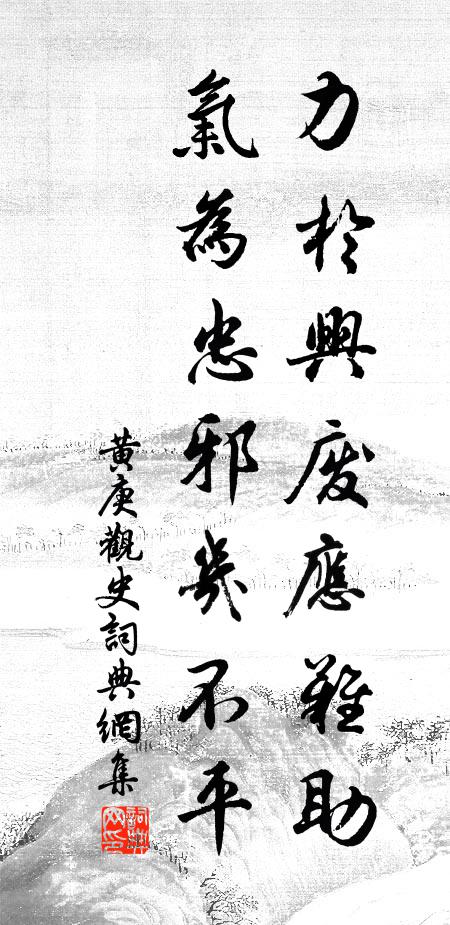 力於興廢應難助
氣為忠邪幾不平
黄庚觀史詞典網集